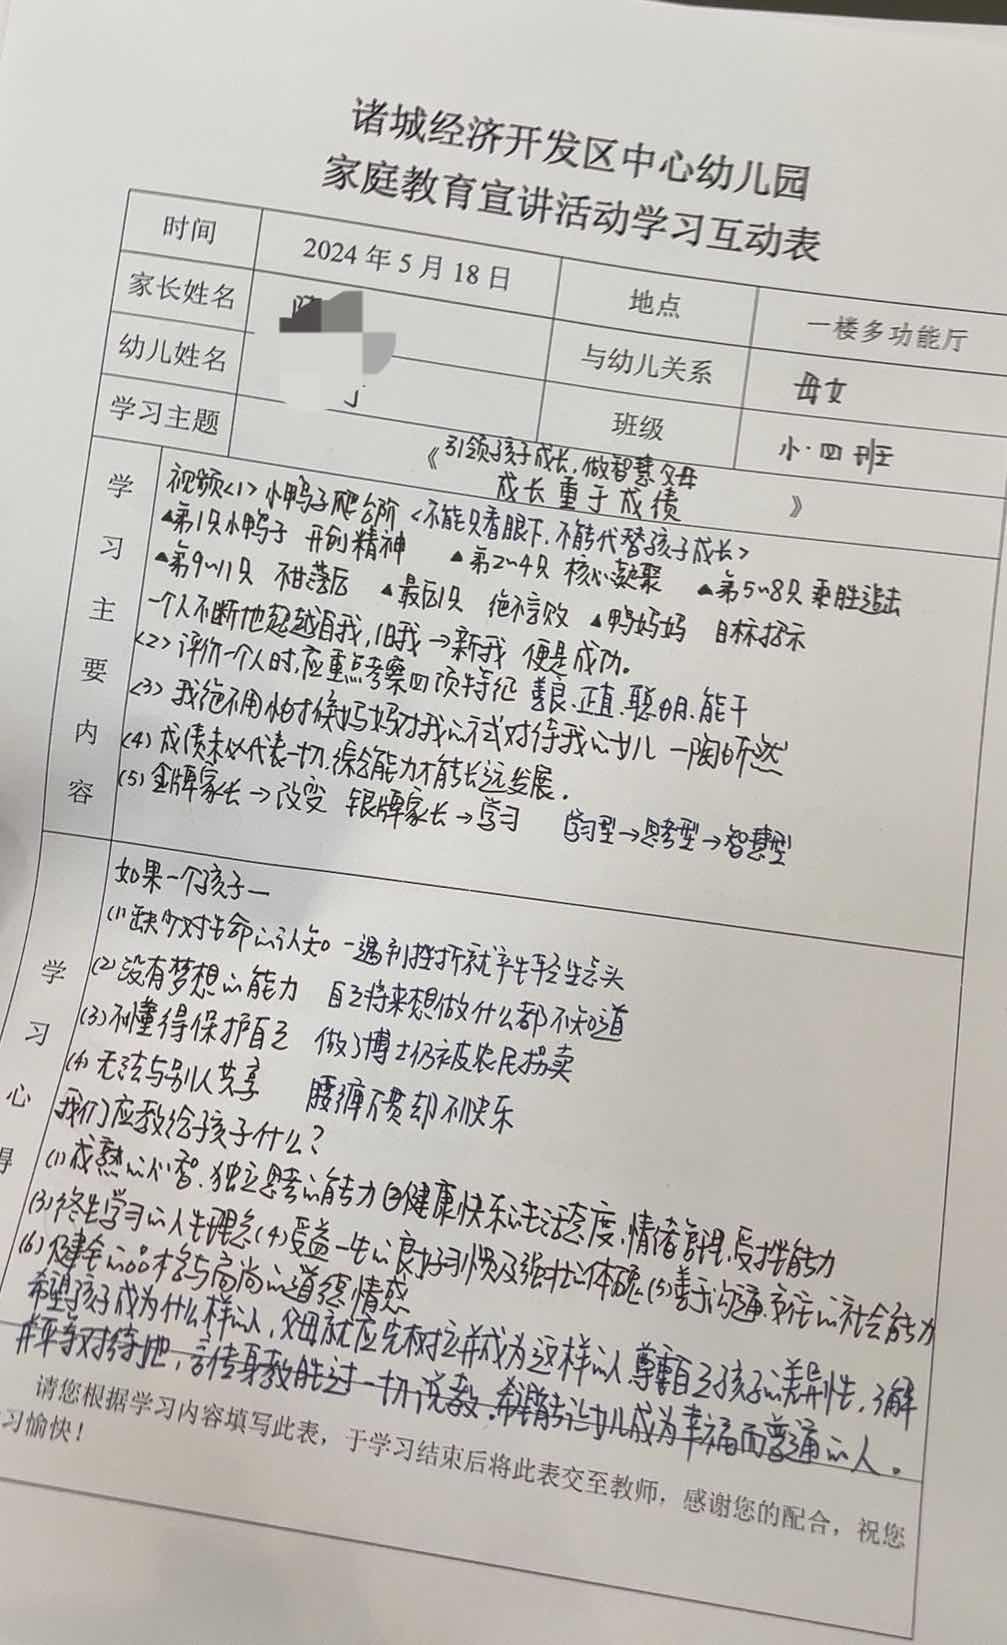 诸城经济开发区中心幼儿园
家庭教育宣讲活动学习互动表
时间 2024年5月18日 地点 一楼多功能厅
家长姓名 与幼儿关系 母女
幼儿姓名 班级 小·四班
学习主题 《引领孩子成长,做智慧父母
成长重于成绩》
学习主要内容
视频<1> 小鸭子爬台阶 <不能只看眼下,不能代替孩子成长>
▲第1只小鸭子 开创精神 ▲第2~4只 核心凝聚 ▲第5~8只 乘胜追击
▲第9~11只 不甘落后 ▲最后1只 绝不言败 ▲鸭妈妈 目标指示
一个人不断地超越自我,旧我→新我 便是成功。
<2> 评价一个人时,应重点考察四项特征 善良.正直.聪明.能干
<3> 我绝不用小时候妈妈对我的方式对待我的女儿 一陶明然
(4) 成绩未必代表一切,综合能力才能长远发展.
(5) 金牌家长→改变 银牌家长→学习 学习型→思考型→智慧型
学习心得
如果一个孩子—
(1)缺少对生命的认知 一遇到挫折就产生轻生念头
(2)没有梦想的能力 自己将来想做什么都不知道
(3)不懂得保护自己 做了博士仍被农民拐卖
(4)无法与别人共享 腰缠万贯却不快乐
我们应教给孩子什么?
(1)成熟的心智.独立思考的能力 ②健康快乐的生活态度,情绪管理,受挫能力
(3)终生学习的人生理念(4)受益一生的良好习惯及强壮的体魄(5)善于沟通.交往的社会能力
(6)健全的品格与高尚的道德情感
希望孩子成为什么样的人,父母就应先树立并成为这样的人.尊重自己孩子的差异性,了解
并平等对待她,言传身教胜过一切说教.希望能让女儿成为幸福而普通的人。
请您根据学习内容填写此表,于学习结束后将此表交至教师,感谢您的配合,祝您
习愉快!